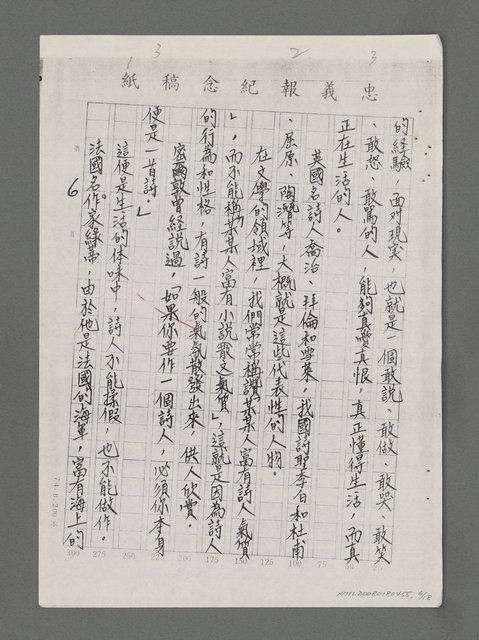 3 2 3
忠義報紀念稿紙
的經驗，面對現實，也就是一個敢說、敢做、敢哭、敢笑
、敢怒、敢罵的人，能夠真愛真恨，真正懂得生活，而真
正在生活的人。
英國名詩人喬治、拜倫和雪萊，我國詩聖李白和杜甫
、屈原、陶潛等，大概就是這些代表性的人物。
在文學的領域裡，我們常常稱讚「某某人富有詩人氣質
」，而不能稱「某某人富有小說散文氣質」，這就是因為詩人
的行為和性格，有詩一般的氣氛散發出來，供人欣賞。
密爾敦曾經說過，「如果你要作一個詩人，必須你本身
便是一首詩。」
這便是生活的体味中，詩人不能揉假，也不能做作。
法國名作家綠蒂，由於他是法國的海軍，富有海上的
6
75 100 125 150 175 200 225 250 275 300
NMTL20080180455, 6/18